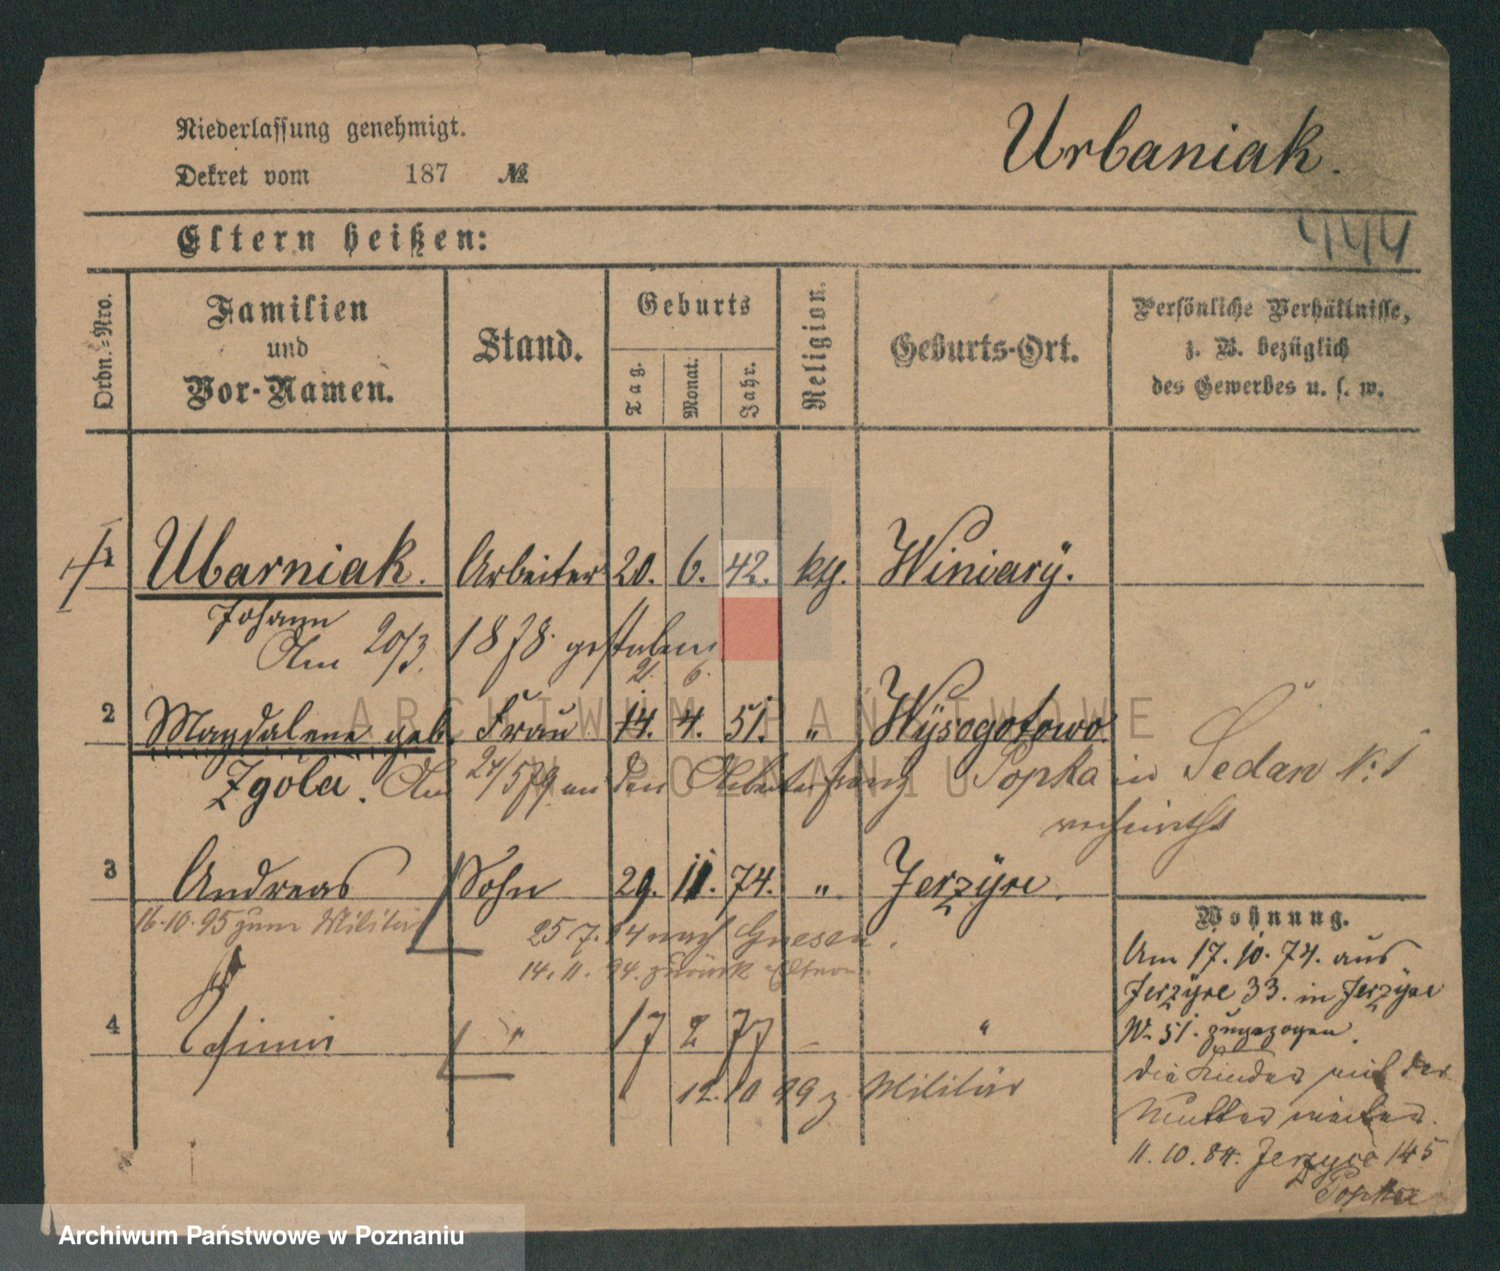 Niederlassung genehmigt.
Dekret vom 187 №
Urbaniak.
444
Eltern heißen:
Ordn.-Nro.
Familien
und
Vor-Namen.
Stand.
Geburts
Tag.
Monat.
Jahr.
Religion.
Geburts-Ort.
Persönliche Verhältnisse,
z. B. bezüglich
des Gewerbes u. s. w.
1 Ubarniak. Arbeiter 20. 6. 42. kth. Winiary.
Johann
Am 20/3. 1878 gestorben
21. 6.
2 Magdalene geb. Frau 14. 4. 51. " Wysogotowo.
Zgola. Am 24/5 79 an den Arbeiter Franz Popka in Sedan N: 1
verheirathet
3 Andreas Sohn 29. 11. 74. " Jerzyce.
16.10.95 zum Militär
25/7. 94 nach Gnesen.
14. 11. 94. zurück Eltern
4 Casimir " 17 2 77 "
12. 10 99 z. Militär
Wohnung.
Am 17. 10. 74. aus
Jerzyce 33. in Jerzyce
N. 51. zugezogen.
die Kinder mit der
Mutter
11. 10. 84. Jerzyce 145
Popka
ARCHIWUM PAŃSTWOWE
W POZNANIU
Archiwum Państwowe w Poznaniu